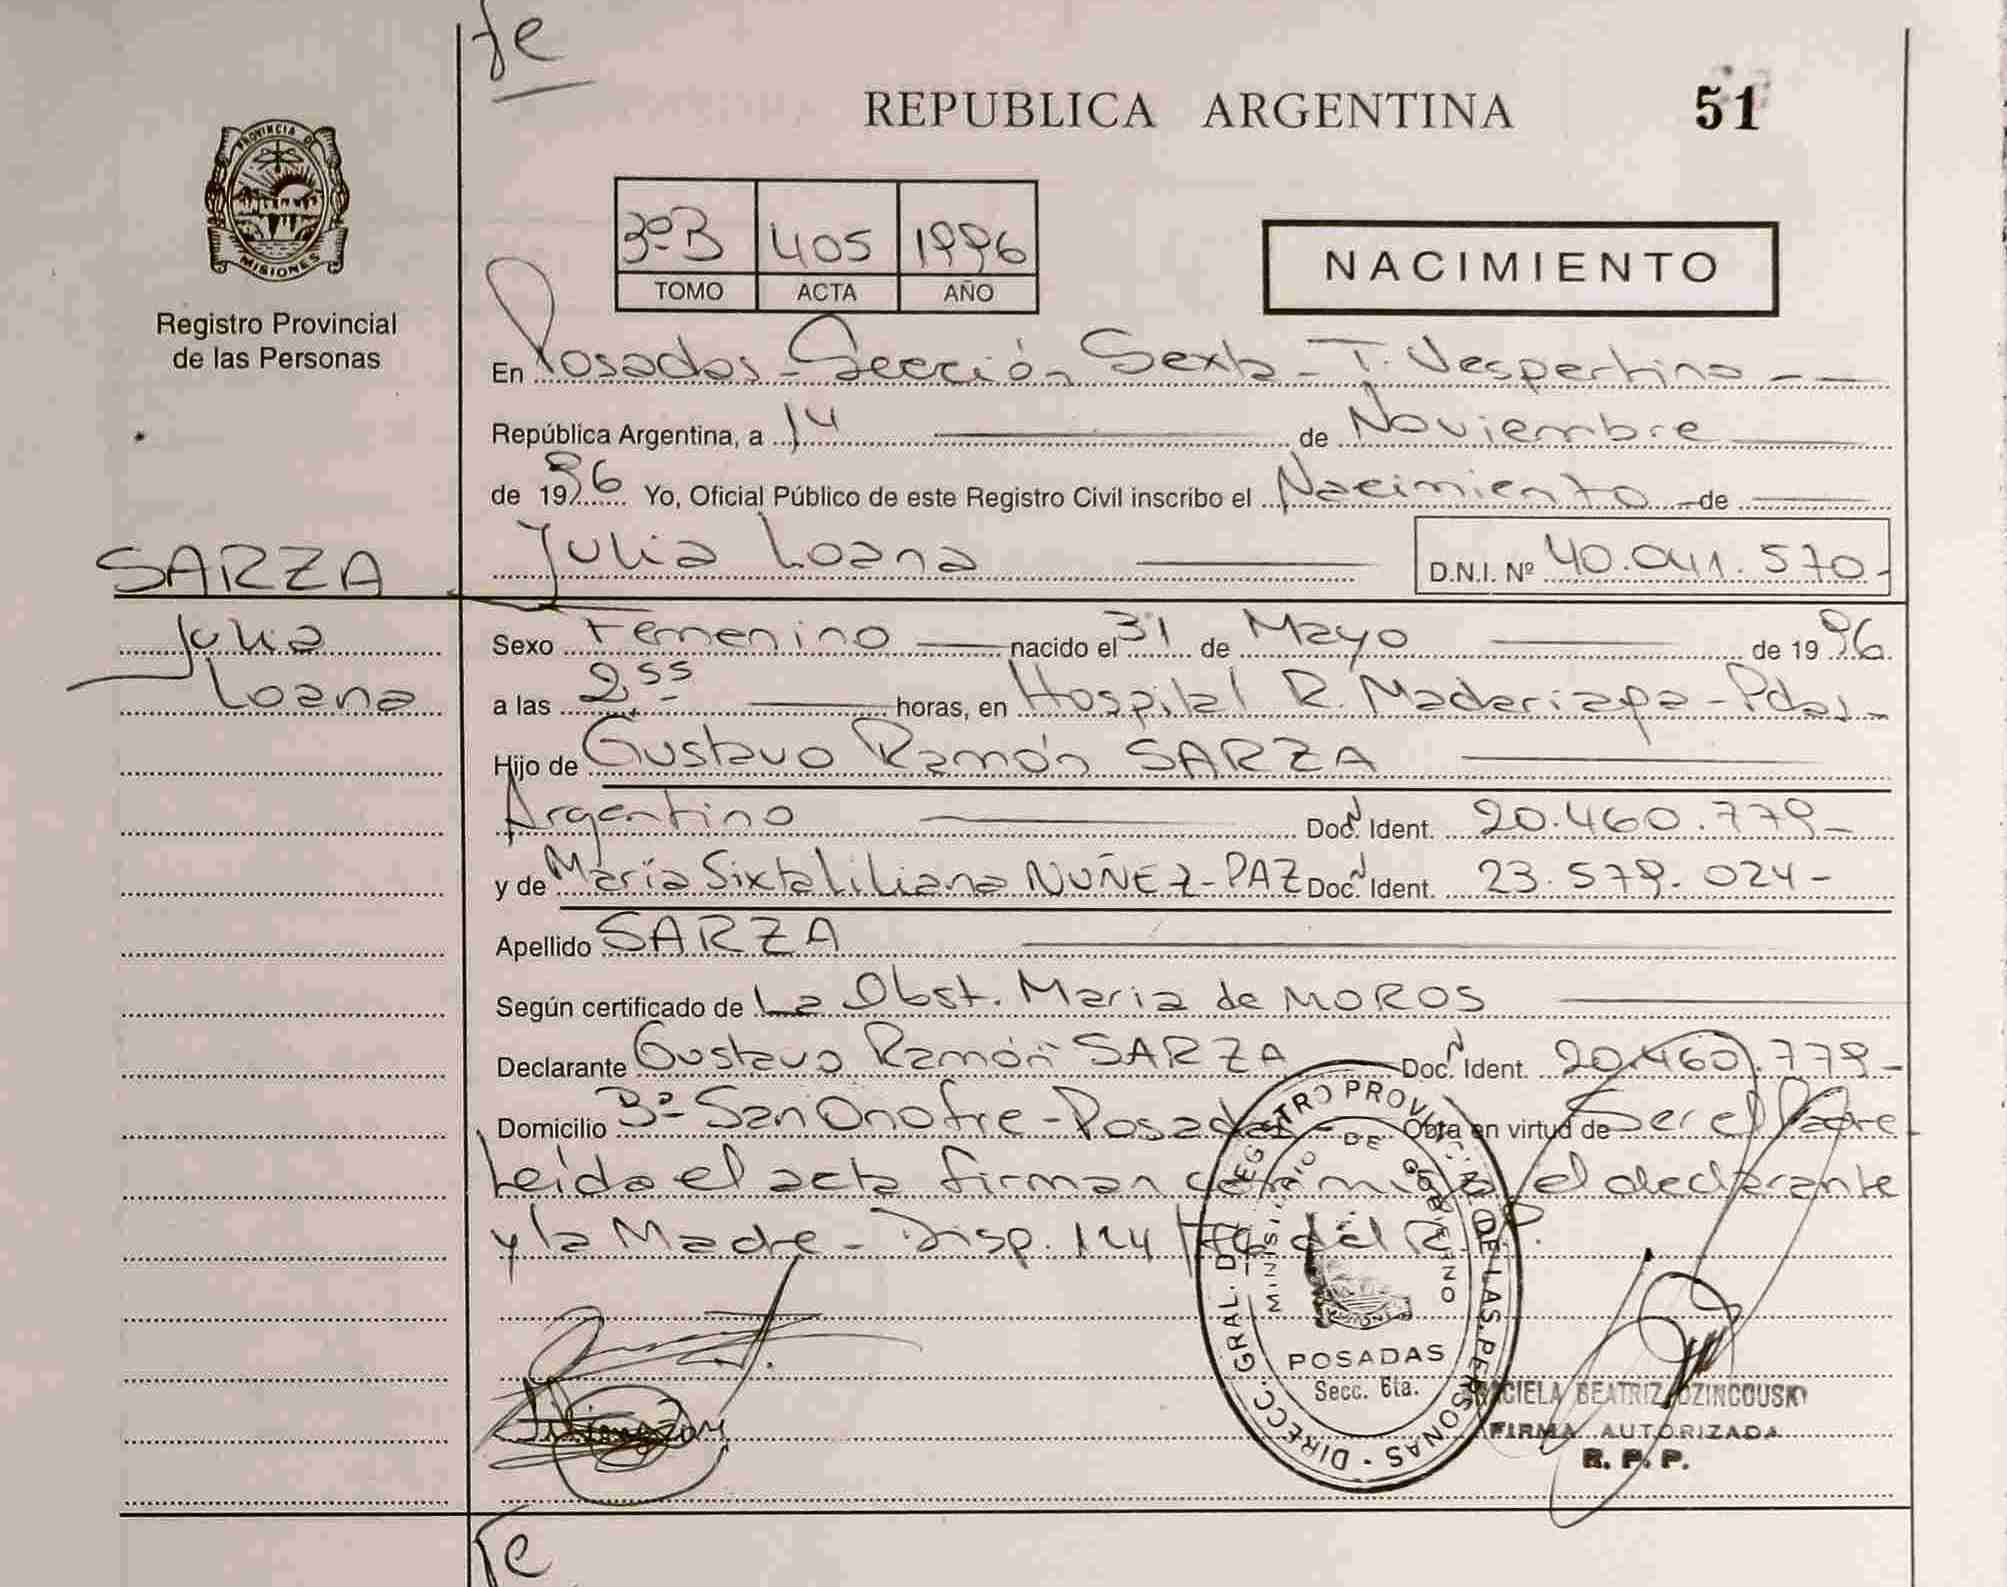 fe
REPUBLICA ARGENTINA
51
PROVINCIA D
MISIONES
Registro Provincial
de las Personas
3º B 405 1996
TOMO ACTA AÑO
NACIMIENTO
En Posadas - Sección Sexta - T. Vespertino - —
República Argentina, a 14 de Noviembre
de 1996 Yo, Oficial Público de este Registro Civil inscribo el Nacimiento - de
SARZA
Julia Loana
D.N.I. Nº 40.041.570-
Julia
Loana
Sexo Femenino nacido el 31 de Mayo de 1996
a las 2,55 horas, en Hospital R. Madariaga - Pdas -
Hijo de Gustavo Ramón SARZA
Argentino Doc. Ident. 20.460.779-
y de María Sixta Liliana NUÑEZ - PAZ Doc. Ident. 23.579.024-
Apellido SARZA
Según certificado de La Obst. Maria de MOROS
Declarante Gustavo Ramón SARZA Doc. Ident. 20.460.779-
Domicilio Bº San Onofre - Posadas - Obra en virtud de Ser el Padre
Leída el acta firman conmigo el declarante
y la Madre - Disp. 124 del R.P.
DIRECC. GRAL. DEL REGISTRO PROVINCIAL DE LAS PERSONAS
MINISTERIO DE GOBIERNO
POSADAS
Secc. 6ta.
BEATRIZ
FIRMA AUTORIZADA
R. P. P.
fe